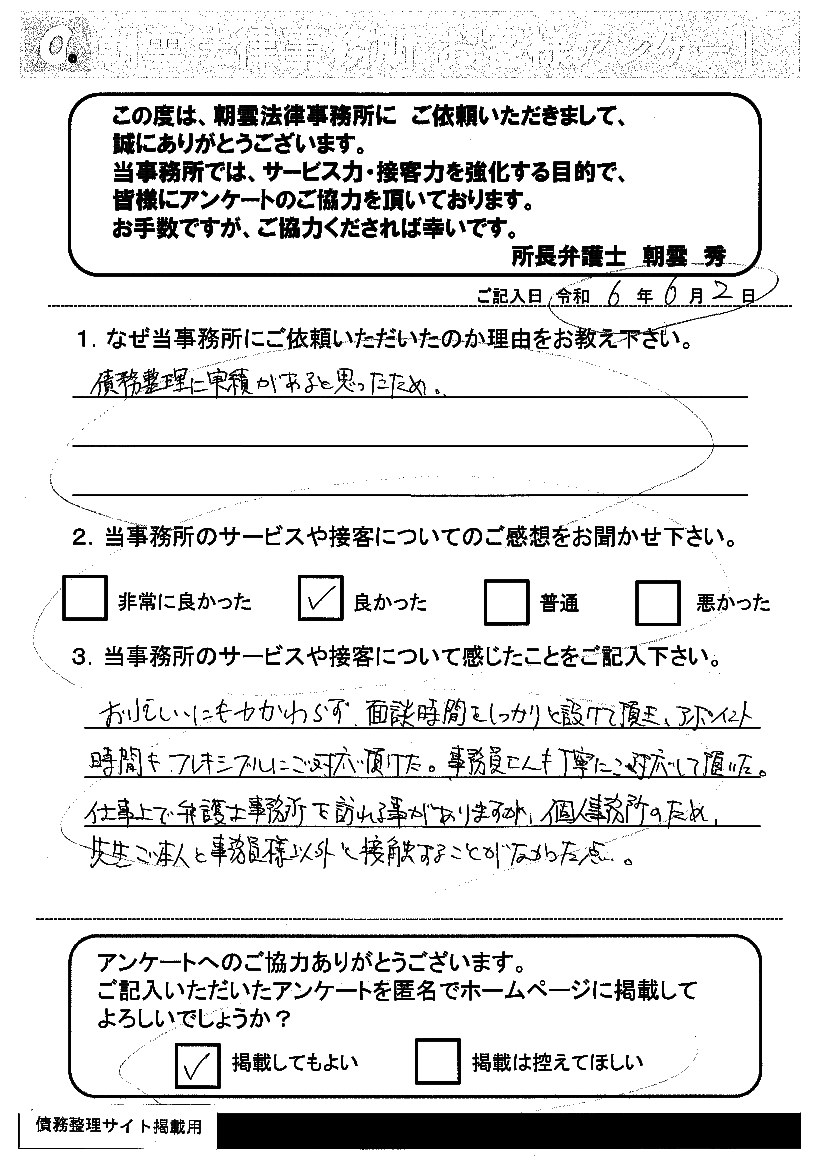 9.
朝雲法律事務所 お客様アンケート
この度は、朝雲法律事務所に ご依頼いただきまして、
誠にありがとうございます。
当事務所では、サービス力・接客力を強化する目的で、
皆様にアンケートのご協力を頂いております。
お手数ですが、ご協力くだされば幸いです。
所長弁護士 朝雲 秀
ご記入日 令和 6 年 6 月 2 日
1. なぜ当事務所にご依頼いただいたのか理由をお教え下さい。
債務整理に実績があると思ったため。
2. 当事務所のサービスや接客についてのご感想をお聞かせ下さい。
非常に良かった ✓ 良かった 普通 悪かった
3. 当事務所のサービスや接客について感じたことをご記入下さい。
お忙しいにもかかわらず、面談時間をしっかりと設けて頂き、アポイント
時間もフレキシブルにご対応頂けた。事務員さんも丁寧にご対応して頂いた。
仕事上で弁護士事務所を訪れる事がありますが、個人事務所のため、
先生ご本人と事務員様以外と接触することがなかった点。
アンケートへのご協力ありがとうございます。
ご記入いただいたアンケートを匿名でホームページに掲載して
よろしいでしょうか?
✓ 掲載してもよい 掲載は控えてほしい
債務整理サイト掲載用